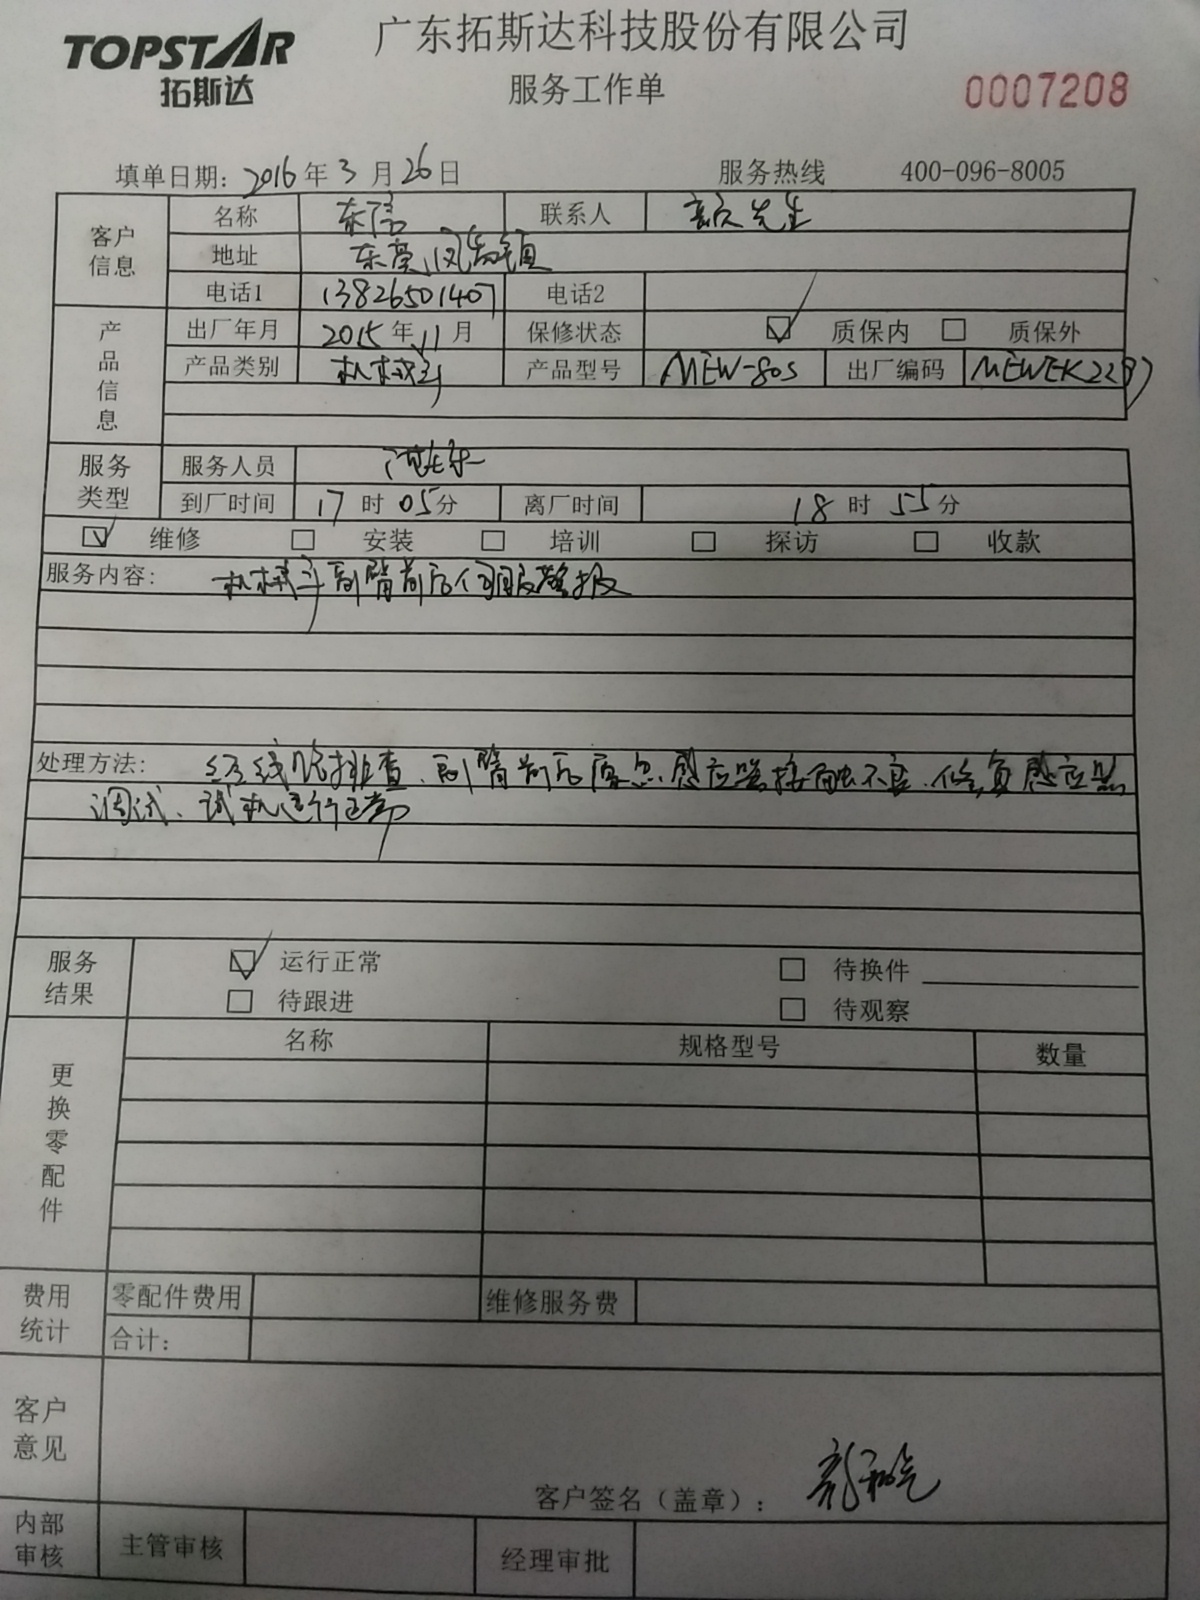 TOPSTAR
拓斯达
广东拓斯达科技股份有限公司
服务工作单
0007208
填单日期: 2016 年 3 月 26 日 服务热线 400-096-8005
客户信息
名称 东信 联系人 先生
地址 东莞凤岗镇
电话1 13826501407 电话2
产品信息
出厂年月 2015 年 11 月 保修状态 质保内 质保外
产品类别 机械手 产品型号 MEW-80S 出厂编码 MEWEK2297
服务类型
服务人员
到厂时间 17 时 05 分 离厂时间 18 时 55 分
维修 安装 培训 探访 收款
服务内容: 机械手副臂前后伺服警报
处理方法: 经线路排查、副臂前后原点感应器接触不良、修复感应器
调试、试机运行正常
服务结果
运行正常 待换件
待跟进 待观察
更换零配件
名称 规格型号 数量
费用统计
零配件费用 维修服务费
合计:
客户意见
客户签名（盖章）:
内部审核
主管审核 经理审批